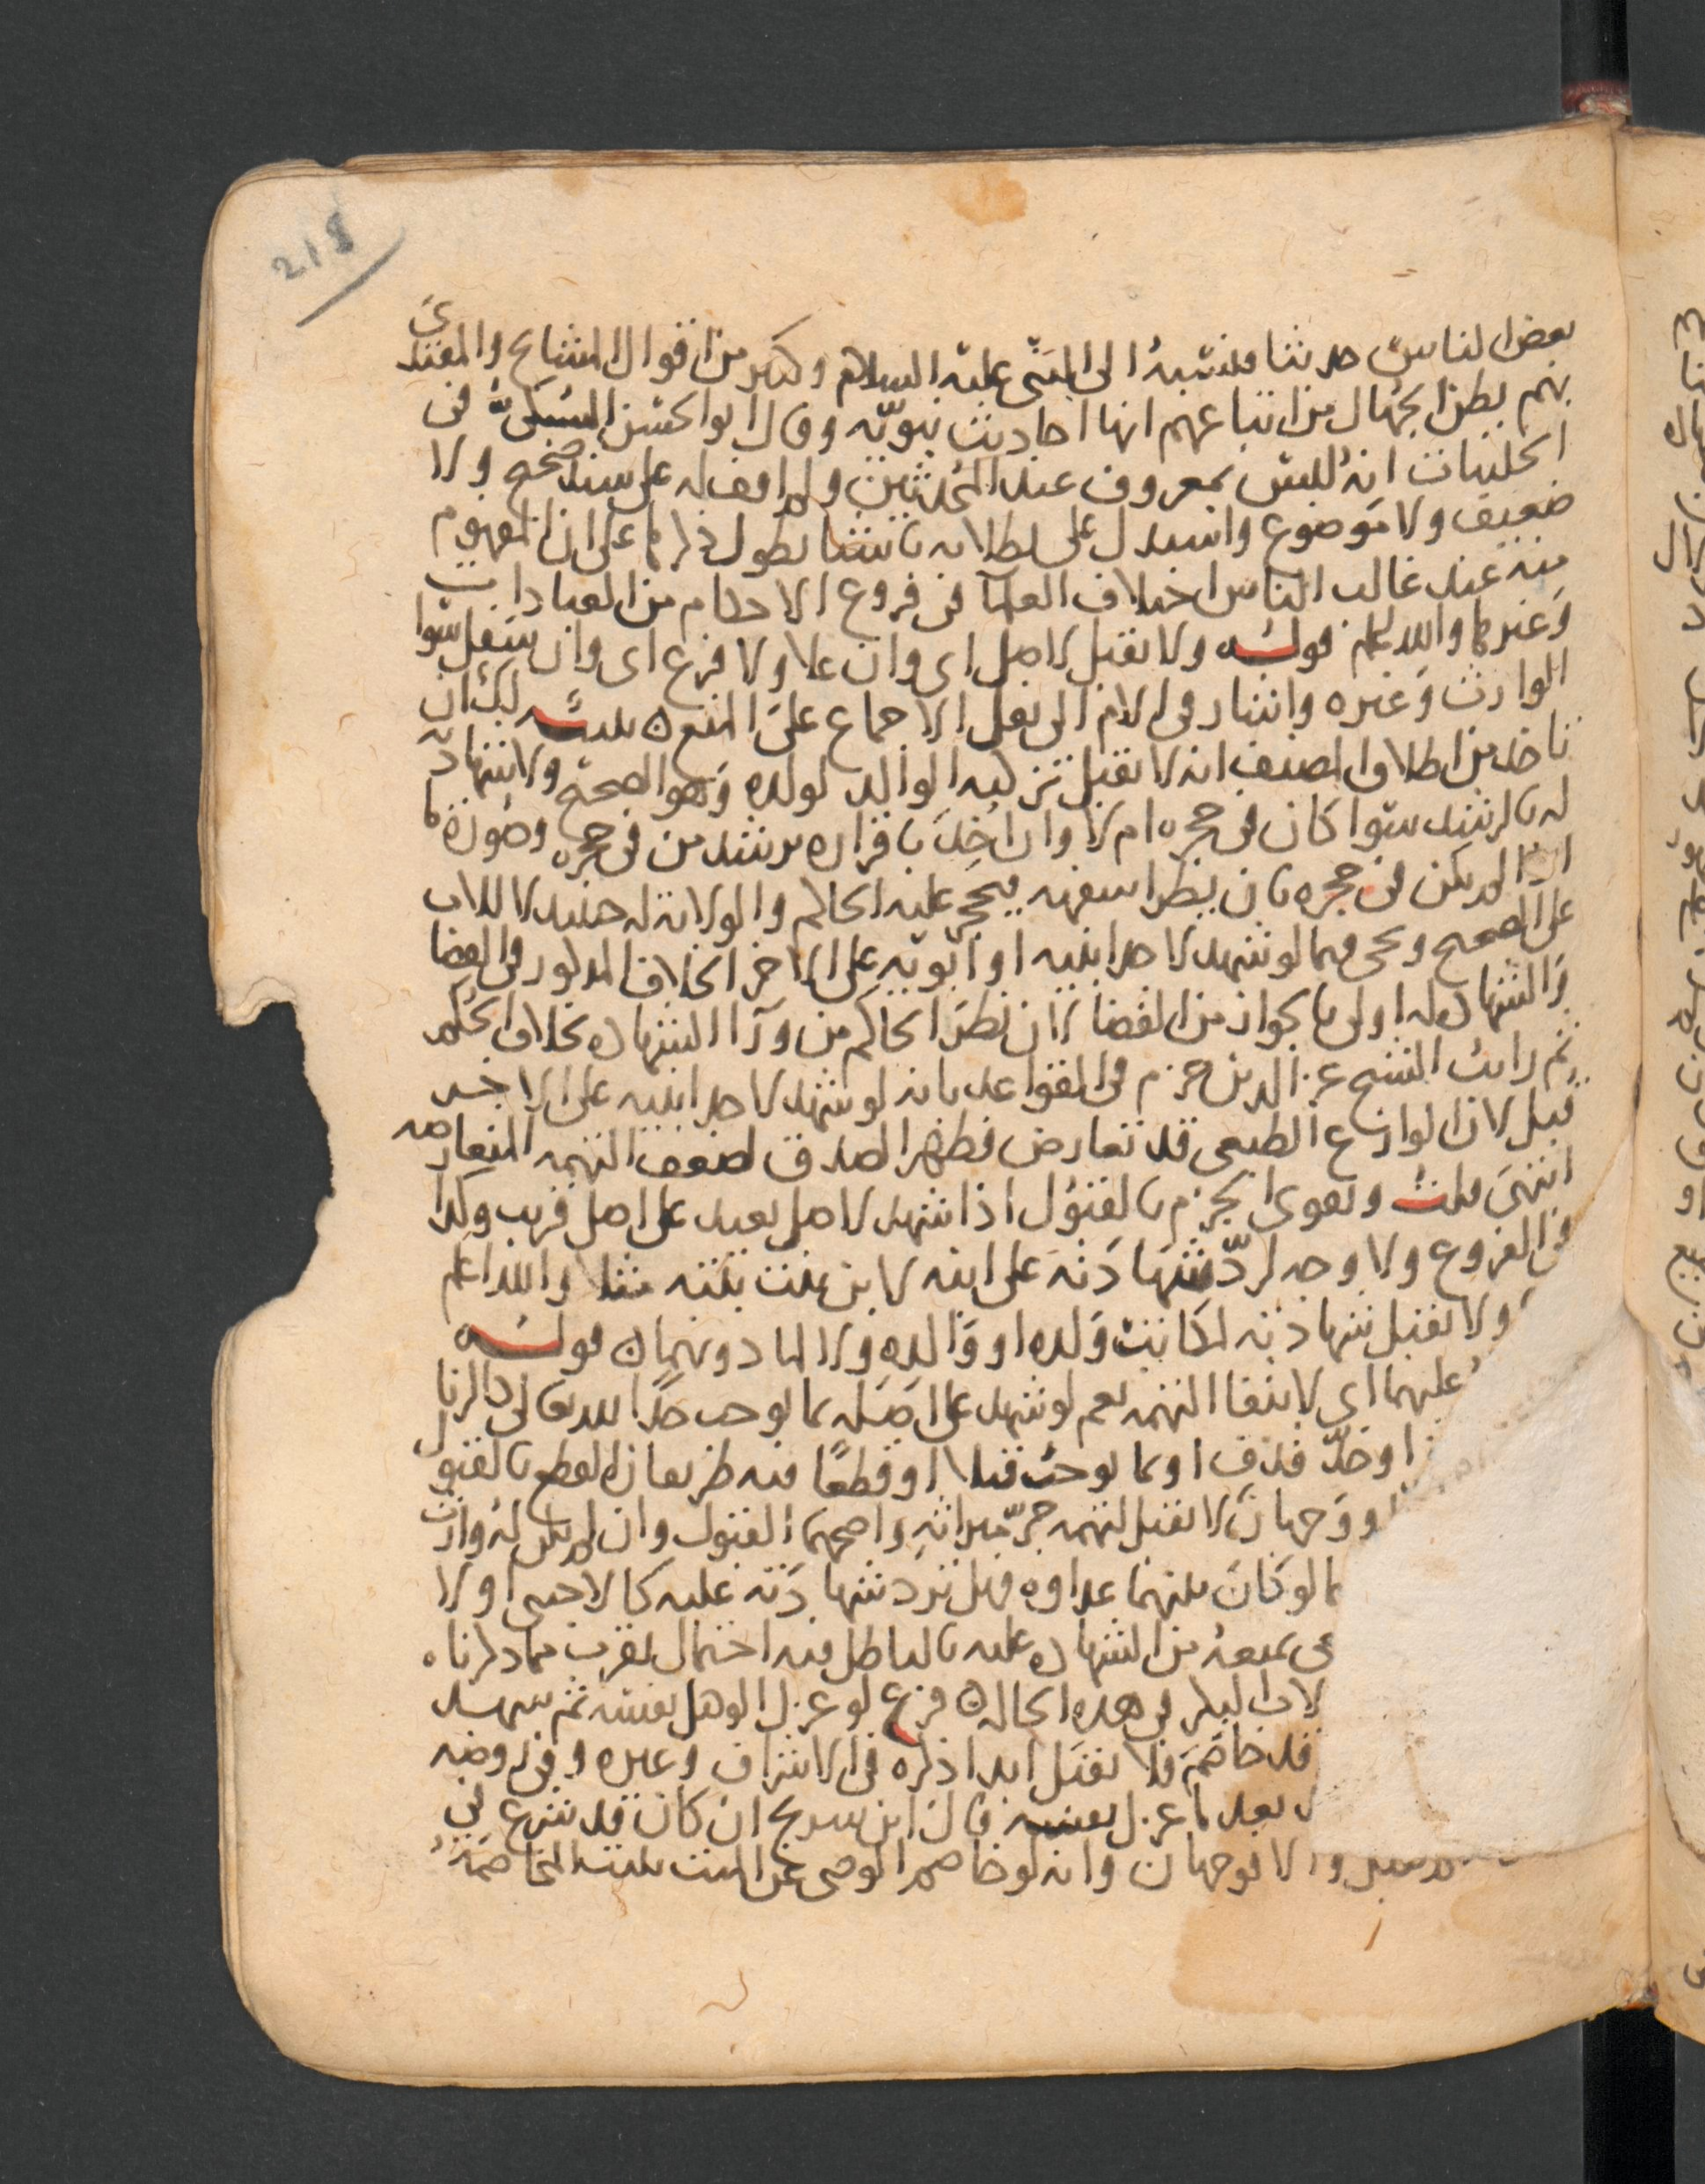 218
بعض الناس حديثا فنسبه الى النبي عليه السلام وكم من اقوال المشايخ والمقتدي
بهم يظن الجهال من اتباعهم انها احاديث نبوية وقال ابو الحسن السبكي في
الحلبيات انه ليس بمعروف عند المحدثين ولم اقف له على سند صحيح ولا
ضعيف ولا موضوع واستدل على بطلانه باشيا يطول ذكرها على ان المفهوم
منه عند غالب الناس اختلاف العلما في فروع الاحكام من العبادات
وغيرها والله اعلم قوله ولا تقبل لاصل اي وان علا ولا فرع اي وان سفل سوا
الوارث وغيره واشار في الام الى نقل الاجماع على المنع قلت لك ان
تاخذ من اطلاق المصنف انه لا تقبل تزكية الوالد لولده وهو الصحيح ولا شهادته
له بالرشد سوا كان في حجره ام لا وان اخذ باقراره برشد من في حجره وصورتها
اذا لم يكن في حجره بان يطرا سفهه فيحجر عليه الحاكم والولاية له حينئذ لا للاب
على الصحيح ويجي فيما لو شهد لاحد ابنيه او ابويه على الاخر الخلاف المذكور في القضا
والشهادة له اولى بالجواز من القضا لان نظر الحاكم من ورا الشهادة بخلاف الحكم
ثم رايت الشيخ عز الدين جزم في القواعد بانه لو شهد لاحد ابنيه على الاخر
قبل لان الوازع الطبعي قد تعارض فظهر الصدق لضعف التهمه المتعارضه
انتهى قلت ويقوى الجزم بالقبول اذا شهد لاصل بعيد على اصل قريب وكذا
في الفروع ولا وجه لرد شهادته على ابنه لابن بنت بنته مثلا والله اعلم
ولا تقبل شهادته لمكاتب ولده او والده ولا لماذونهما قوله
عليهما اي لانتفا التهمه نعم لو شهد على اصله بما يوجب حدا لله تعالى كالزنا
او حد قذف او بما يوجب قتلا او قطعا فيه طريقان القطع بالقبول
ووجهان لا تقبل لتهمه جر ميراثه واصحهما القبول وان لم يكن له وارث
ما لو كان بينهما عداوه فهل ترد شهادته عليه كالاجنبي او لا
يمنعه من الشهاده عليه بالباطل فيه احتمال يقرب مما ذكرناه
لاب البكر في هذه الحاله فرع لو عزل الوكيل نفسه ثم شهد
قد خاصم فلا تقبل ابدا ذكره في الاشراف وغيره وفي روضه
بعد ما عزل نفسه قال ابن سريج ان كان قد شرع في
والا فوجهان وانه لو خاصم الوصي عن الميت قلت المخاصمة